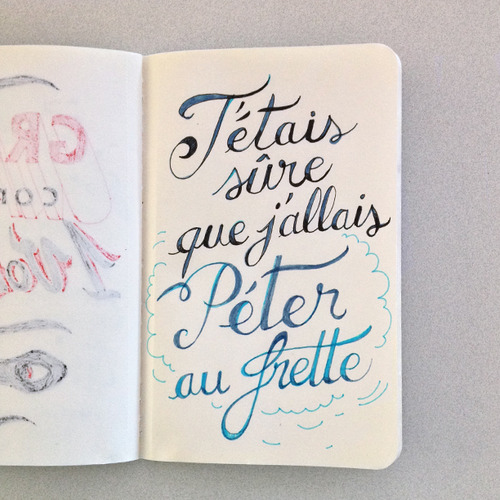 J'étais
sûre
que j'allais
Péter
au frette